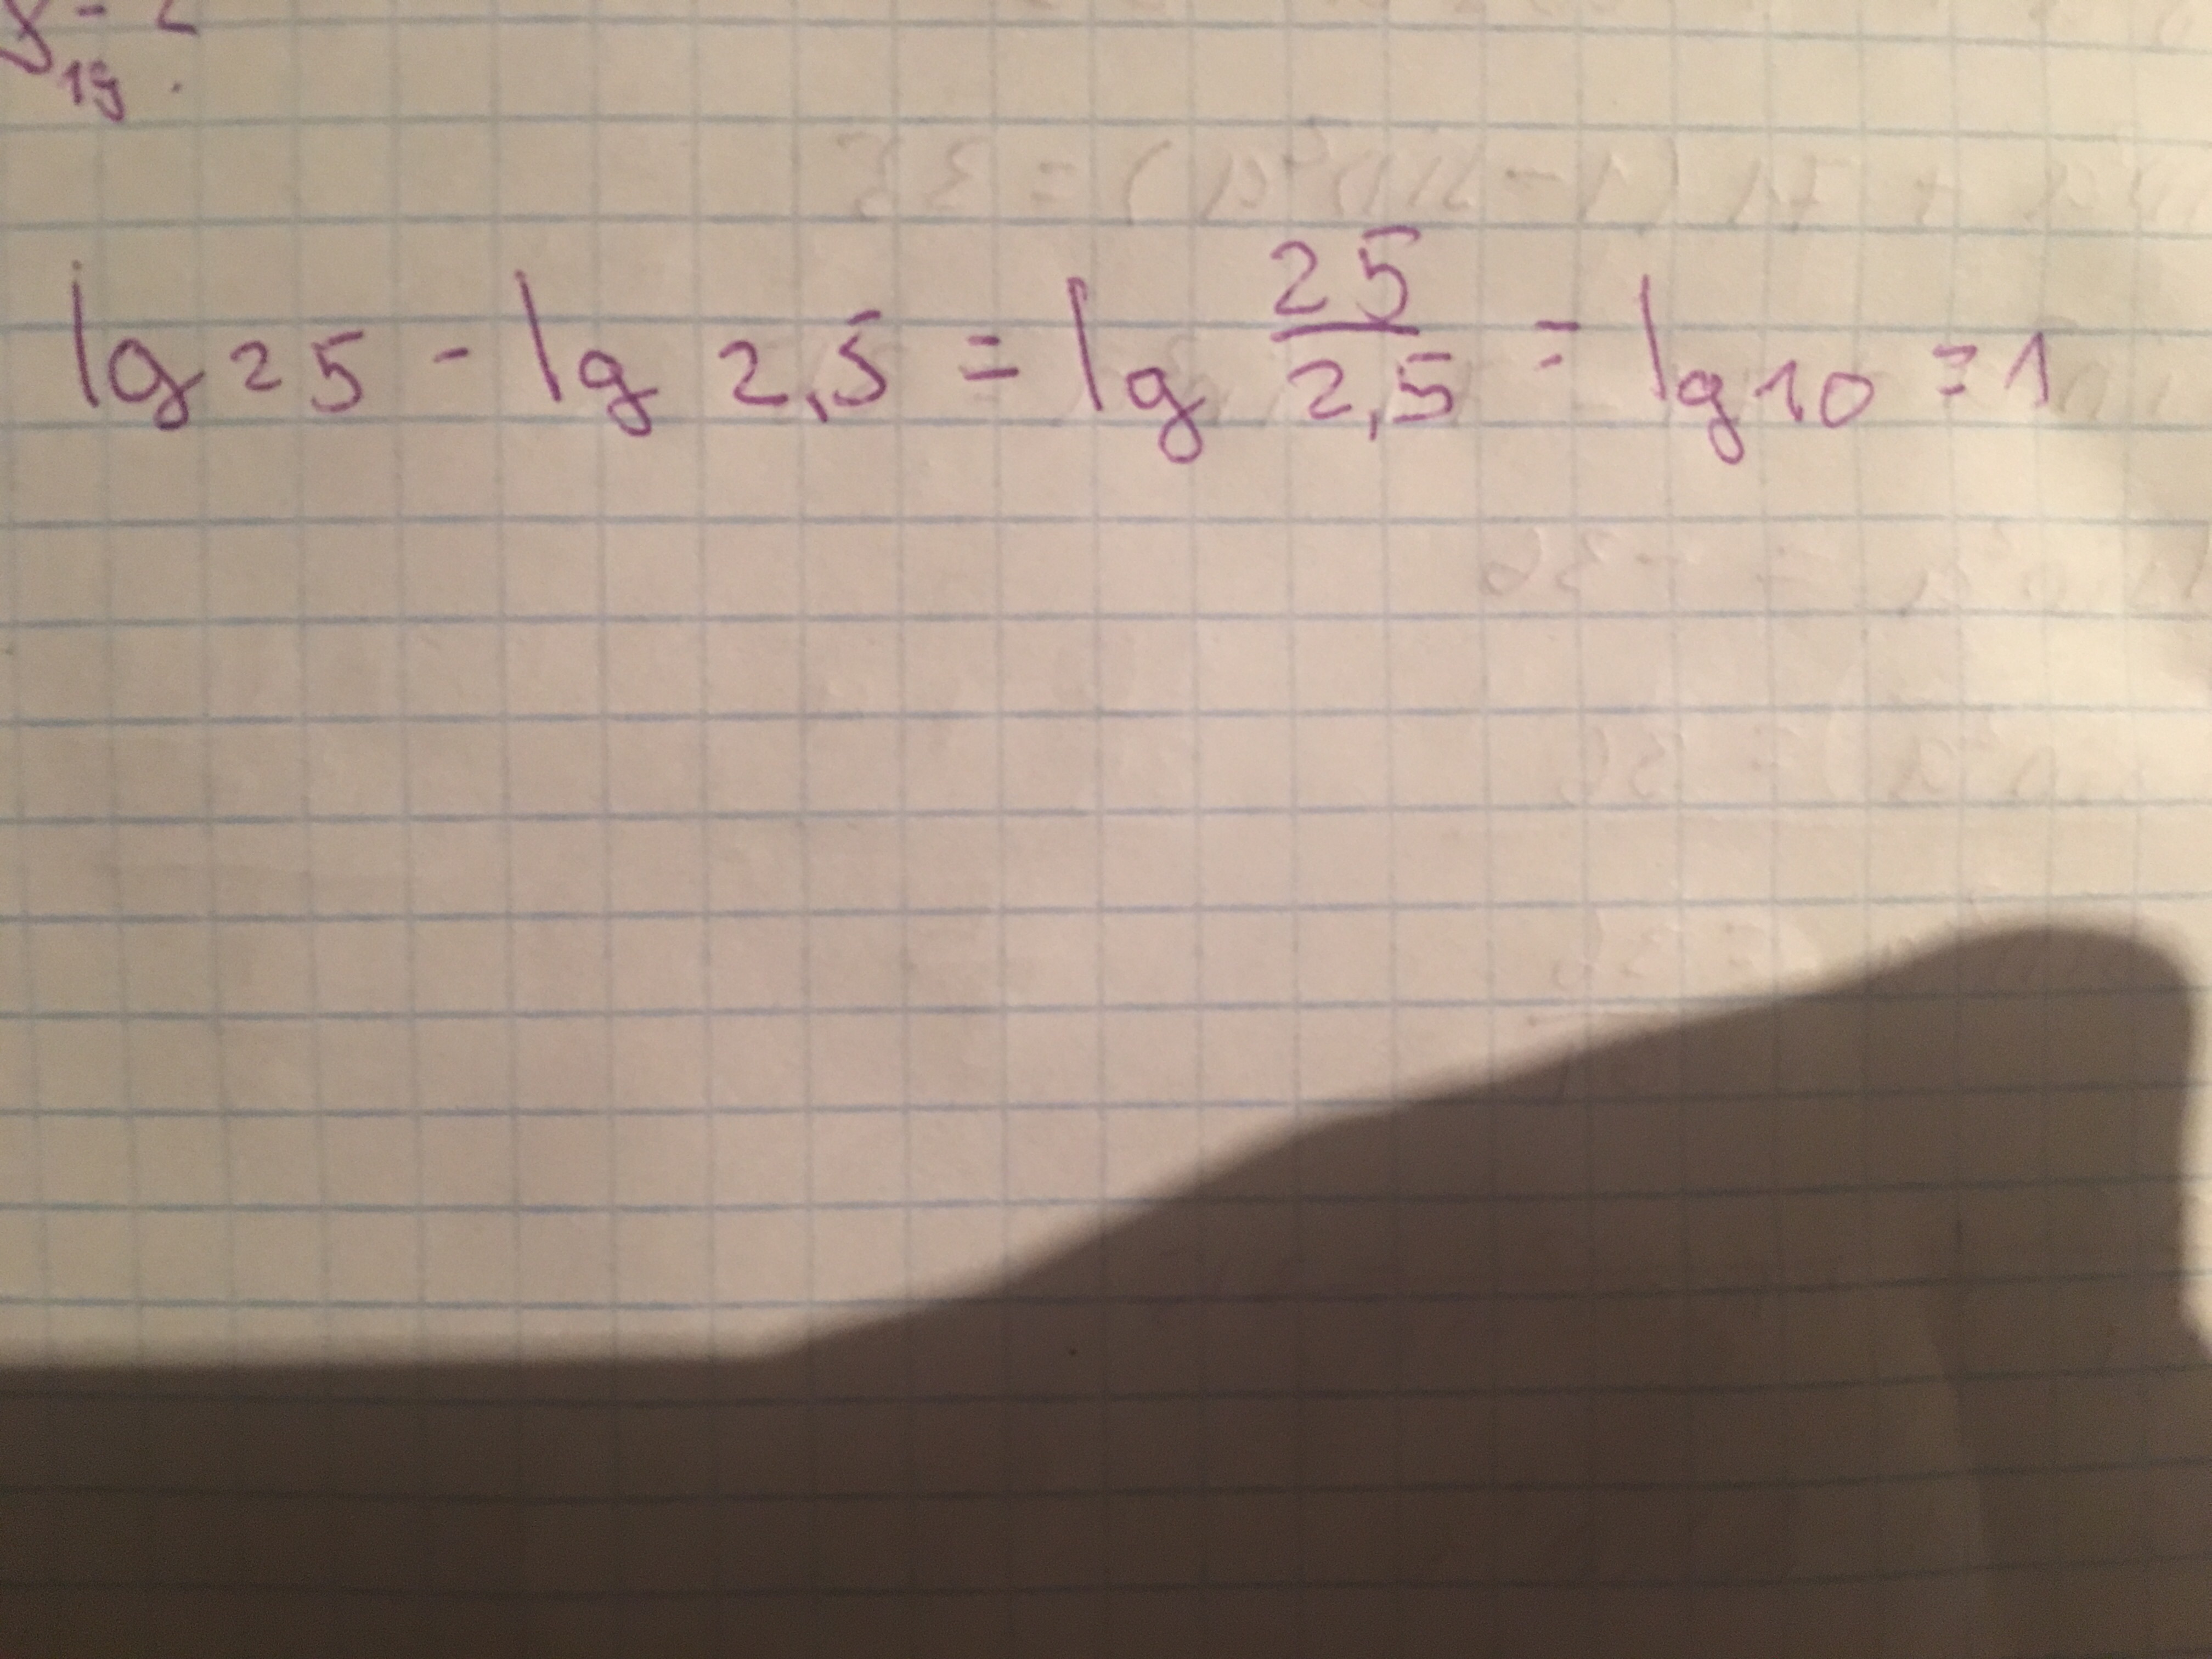 19.
lg 25 - lg 2,5 = lg 25/2,5 = lg 10 = 1